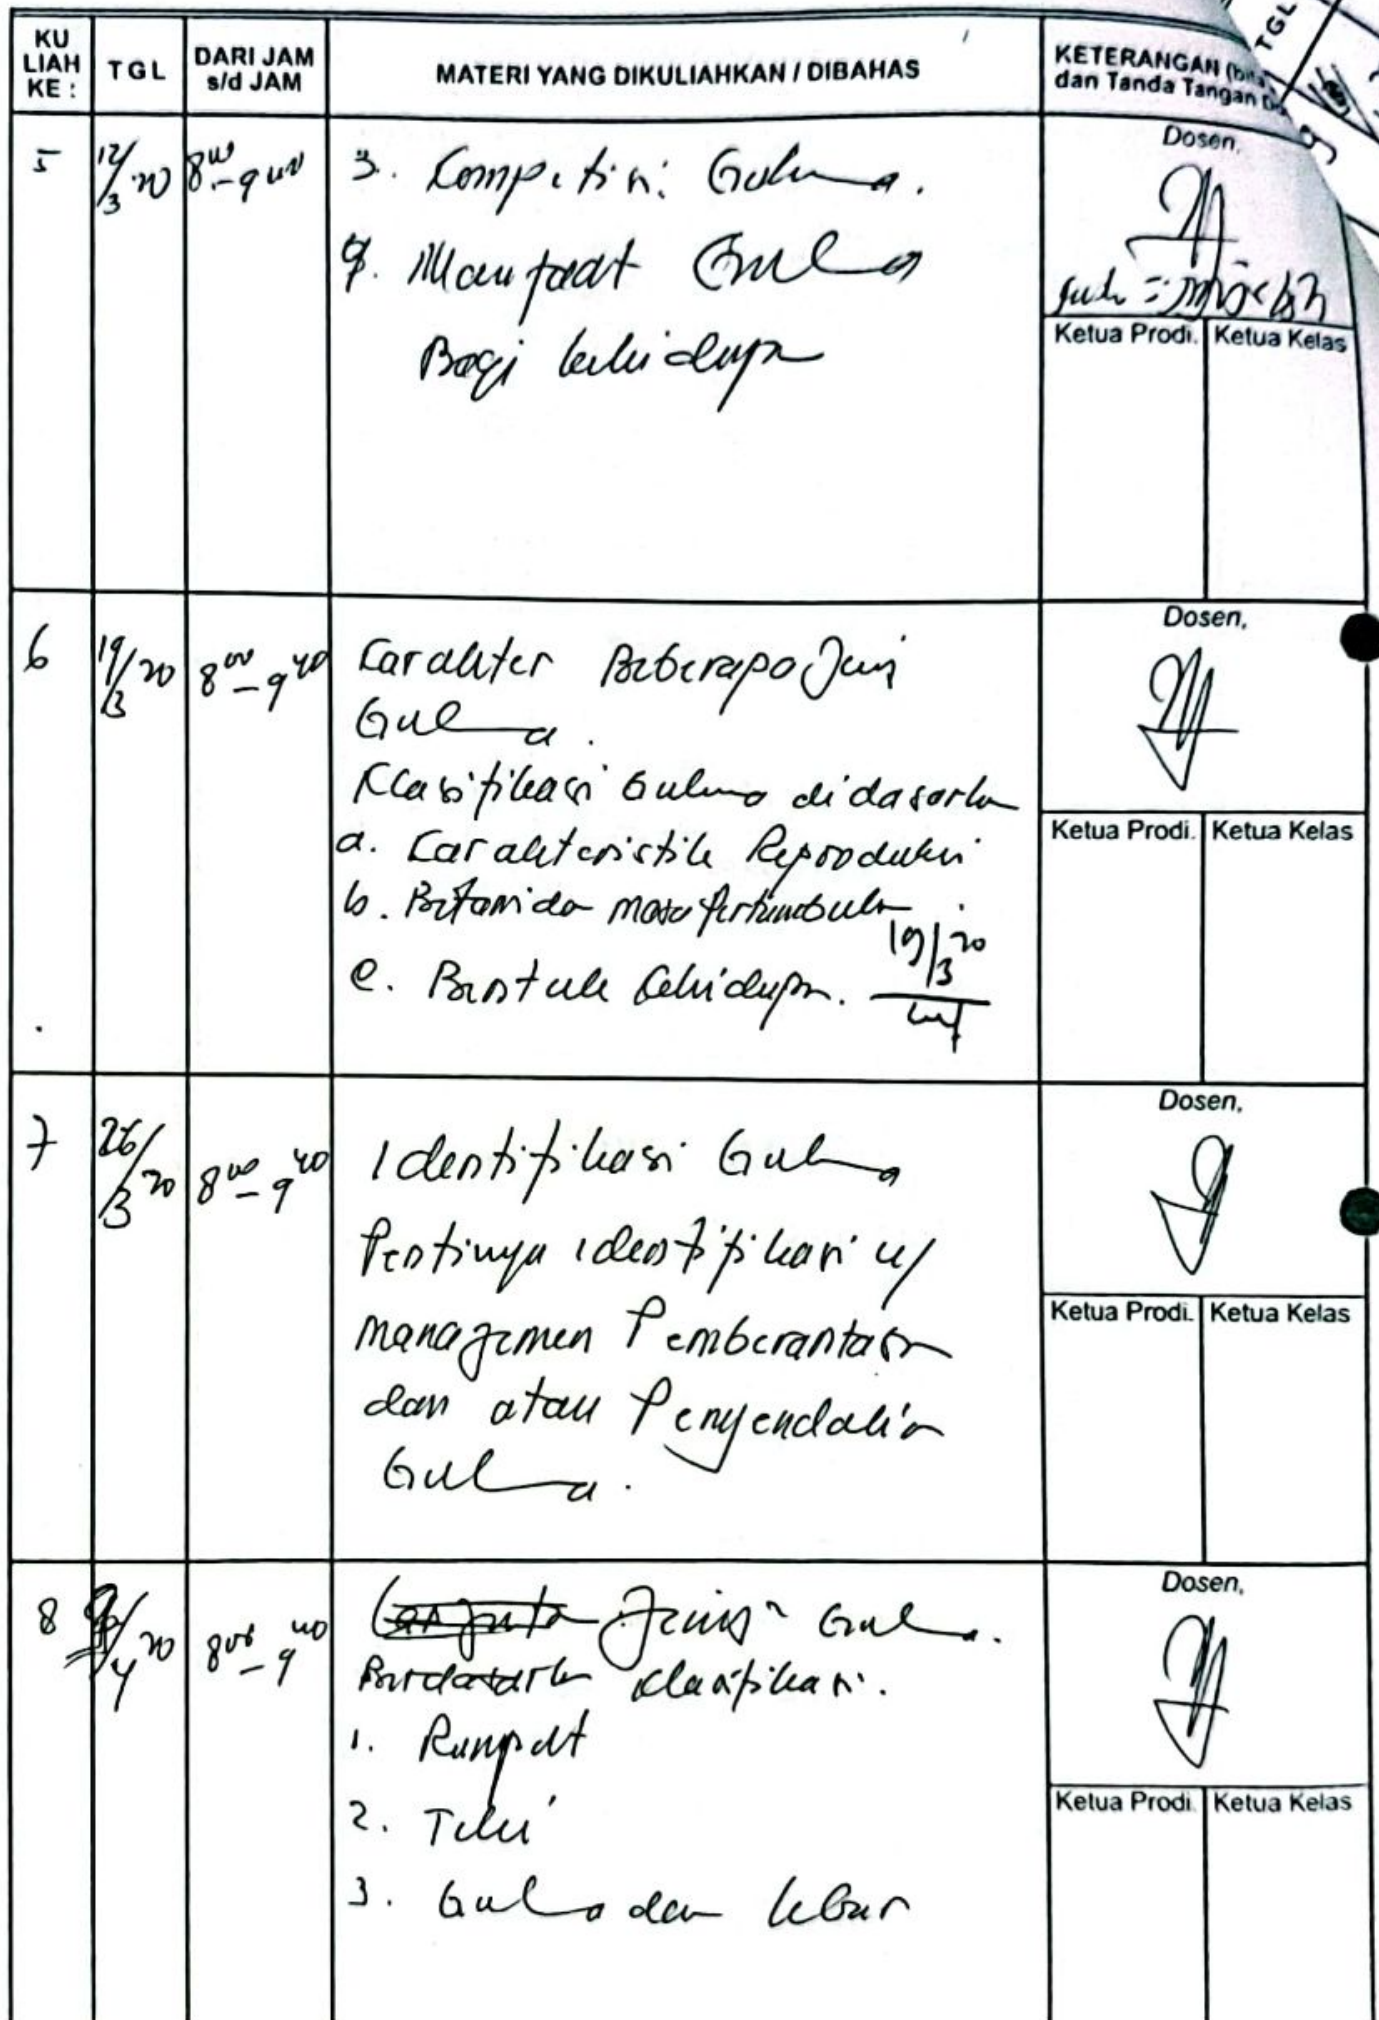 KU LIAH KE :
TGL
DARI JAM s/d JAM
MATERI YANG DIKULIAHKAN / DIBAHAS
KETERANGAN
dan Tanda Tangan
TGL
5
12/3 20
8⁰⁰ - 9⁴⁰
3. Kompetisi Gulma.
4. Manfaat Gulma
Bagi kehidupan
Dosen,
Ketua Prodi.
Ketua Kelas
6
19/3 20
8⁰⁰ - 9⁴⁰
Karakter Beberapa Jenis
Gulma.
Klasifikasi Gulma didasarkan
a. Karakteristik Reproduksi
b. Botani dan masa pertumbuhan
c. Bentuk kehidupan.
19/3 20
Dosen,
Ketua Prodi.
Ketua Kelas
7
26/3 20
8⁰⁰ - 9⁴⁰
Identifikasi Gulma
Pentingnya identifikasi u/
manajemen Pemberantasan
dan atau Pengendalian
Gulma.
Dosen,
Ketua Prodi.
Ketua Kelas
8
/4 20
8⁰⁰ - 9⁴⁰
Jenis² Gulma.
Berdasarkan klasifikasi.
1. Rumput
2. Teki
3. Gulma daun lebar
Dosen,
Ketua Prodi.
Ketua Kelas